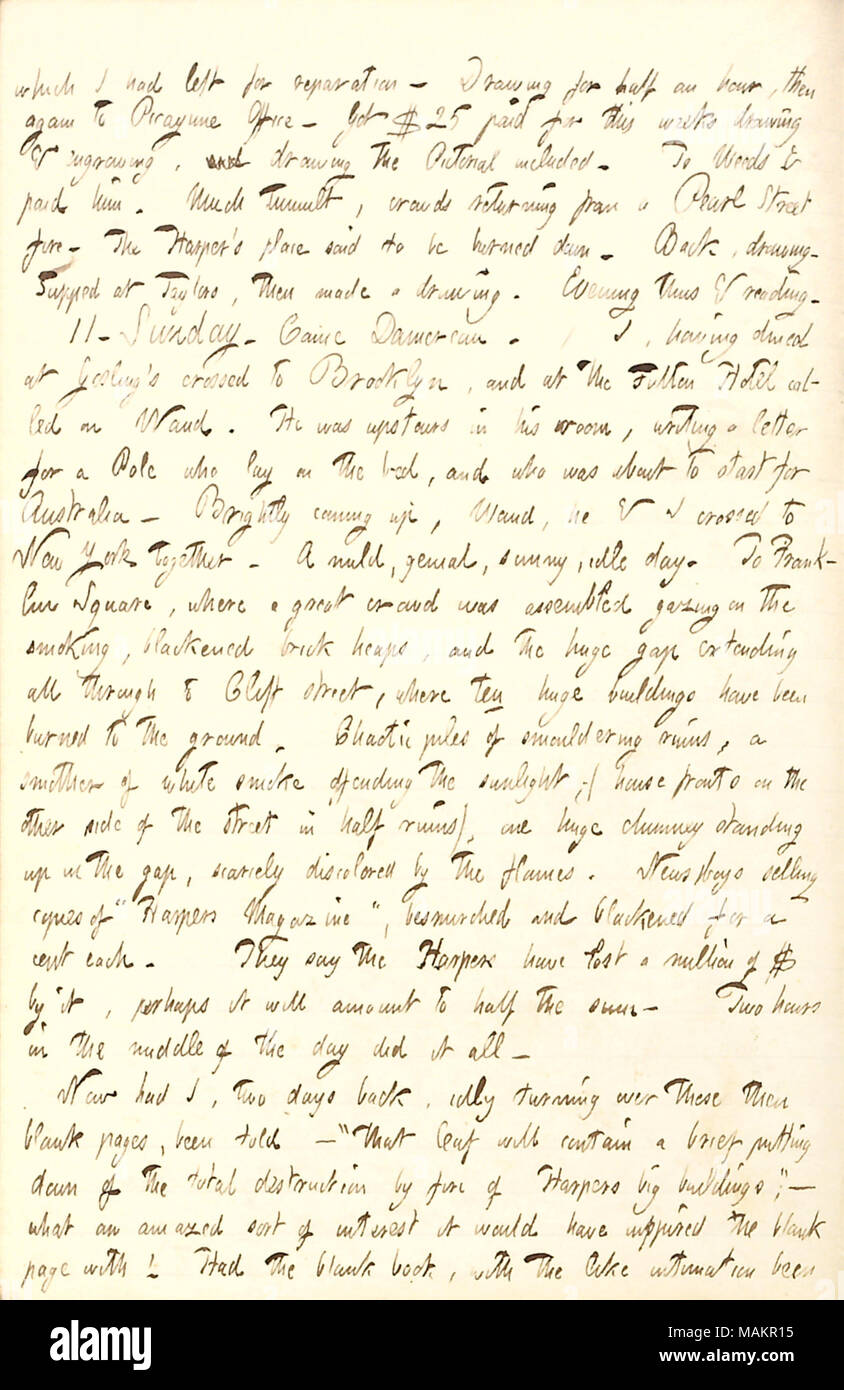 which I had left for reparation — Drawing for half an hour, then
again to Picayune Office — Got $25 paid for this weeks drawing
& engraving, and drawing the Pictorial included. To Woods &
paid him. Much tumult, crowds returning from a Pearl Street
fire — The Harper's place said to be burned down. Back, drawing.
Supped at Taylors, then made a drawing. Evening thus & reading.
11 — Sunday. Came Damoreau. I, having dined
at Gosling's crossed to Brooklyn, and at the Fulton Hotel cal-
led on Waud. He was upstairs in his room, writing a letter
for a Pole who lay on the bed, and who was about to start for
Australia — Brightly coming up, Waud, he & I crossed to
New York together — A mild, genial, sunny, idle day. To Frank-
lin Square, where a great crowd was assembled gazing on the
smoking, blackened brick heaps, and the huge gap extending
all through to Cliff street, where ten huge buildings have been
burned to the ground. Chaotic piles of smouldering ruins, a
smother of white smoke offending the sunlight, (house fronts on the
other side of the street in half ruins), one huge chimney standing
up in the gap, scarcely discolored by the flames. Newsboys selling
copies of "Harpers Magazine", besmirched and blackened for a
cent each. They say the Harpers have lost a million of $
by it, perhaps it will amount to half the sum — Two hours
in the middle of the day did it all —
Now had I, two days back, idly turning over these then
blank pages, been told — "That leaf will contain a brief putting
down of the total destruction by fire of Harpers big buildings"; —
what an amazed sort of interest it would have inspired the blank
page with! Had the blank book, with the like intimation been
alamy
Image ID: MAKR15
www.alamy.com